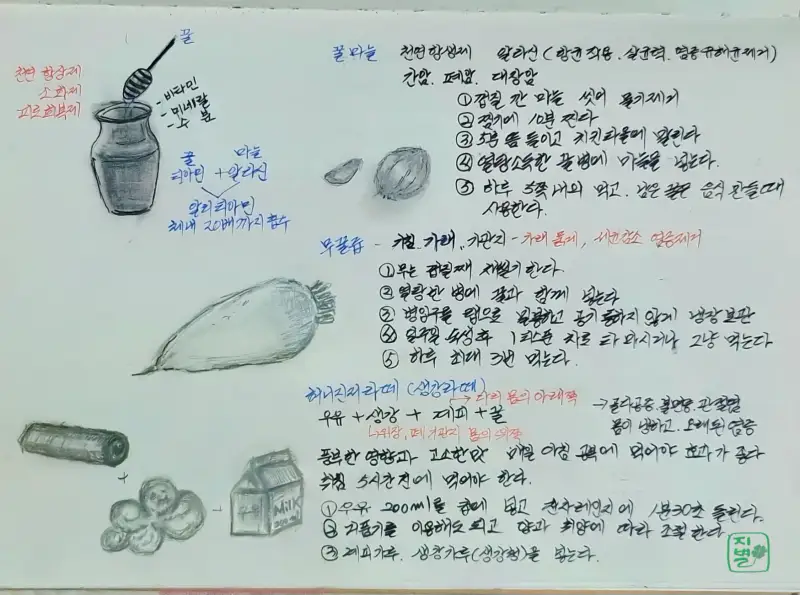 꿀
천연 항생제
소화제
피로회복제
- 비타민
- 미네랄
- 수분
꿀 마늘
티아민 + 알리신
알리티아민
체내 20배까지 흡수
꿀마늘 천연항생제 알리신 (항균작용, 살균력, 염증유해균제거)
간암, 폐암, 대장암
① 껍질 깐 마늘 씻어 물기제거
② 찜기에 10분 찐다
③ 5분 뜸 들이고 치킨타올에 말린다
④ 열탕소독한 꿀병에 마늘을 넣는다.
⑤ 하루 5쪽 내외 먹고, 남은 꿀은 음식 만들때
사용한다.
무꿀즙 - 기침, 가래, 기관지 - 가래 통제, 세균감소 염증제거
① 무는 껍질째 채썰기 한다.
② 열탕한 병에 꿀과 함께 넣는다
③ 병입구를 랩으로 밀봉하고 공기 통하지 않게 냉장보관
④ 일주일 숙성후 1티스푼 차로 타 마시거나 그냥 먹는다
⑤ 하루 최대 3번 먹는다.
허니진저라떼 (생강라떼)
→ 다리 몸의 아래쪽
우유 + 생강 + 계피 + 꿀
→ 골다공증, 불면증, 관절염
↳ 위장, 폐 기관지 몸의 위쪽
몸이 냉하고, 오래된 염증
풍부한 영향과 고소한 맛 매일 아침 공복에 먹어야 효과가 좋다
취침 5시간전에 먹어야 한다.
① 우유 200ml를 컵에 넣고 전자레인지에 1분30초 돌린다.
② 거품기를 이용해도 되고 양과 취향에 따라 조절한다
③ 계피가루, 생강가루(생강청)을 넣는다.
우유
Milk
200ml
지별